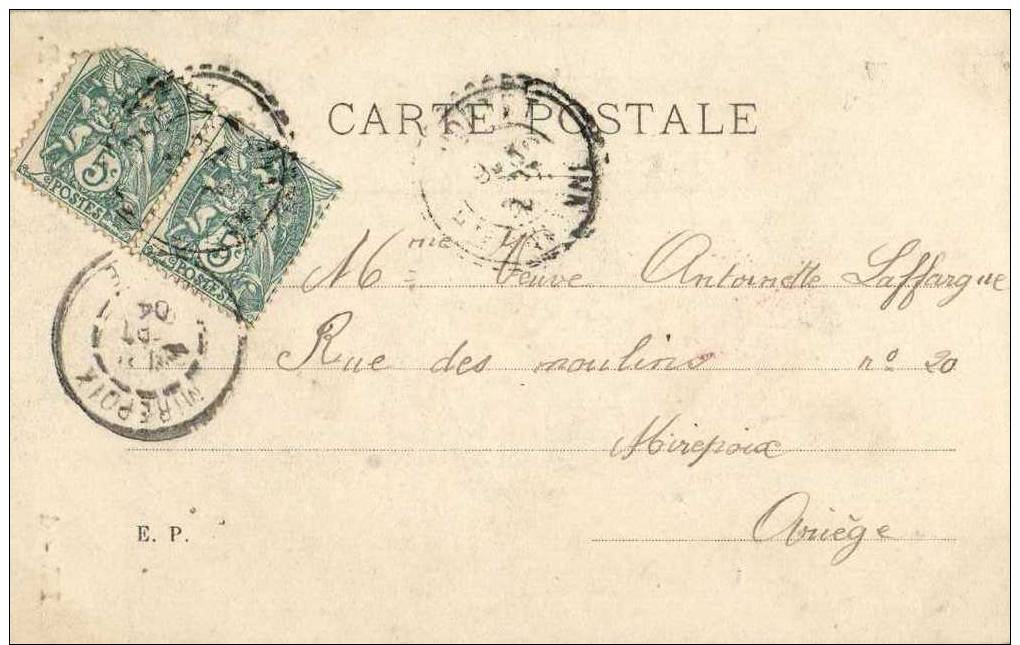 CARTE POSTALE
5c
POSTES
5c
POSTES
Mme Veuve Antoinette Laffargue
Rue des moulins nº 20
Mirepoix
Ariège
MIREPOIX
04
E. P.